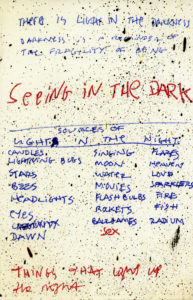 THERE IS LIGHT IN THE DARKNESS
DARKNESS IS A REMINDER
OF THE FRAGILITY OF BEING
SEEING IN THE DARK
SOURCES OF
LIGHT IN THE NIGHT
CANDLES
LIGHTNING BUGS
STARS
HEADLIGHTS
EYES
DAWN
SINGING
MOON
WATER
MOVIES
FLASH BULBS
ROCKETS
SEX
FLARES
HEAVEN
LOVE
SPARKLERS
FIRE
FISH
RADIUM
THINGS THAT LIGHT UP
the night